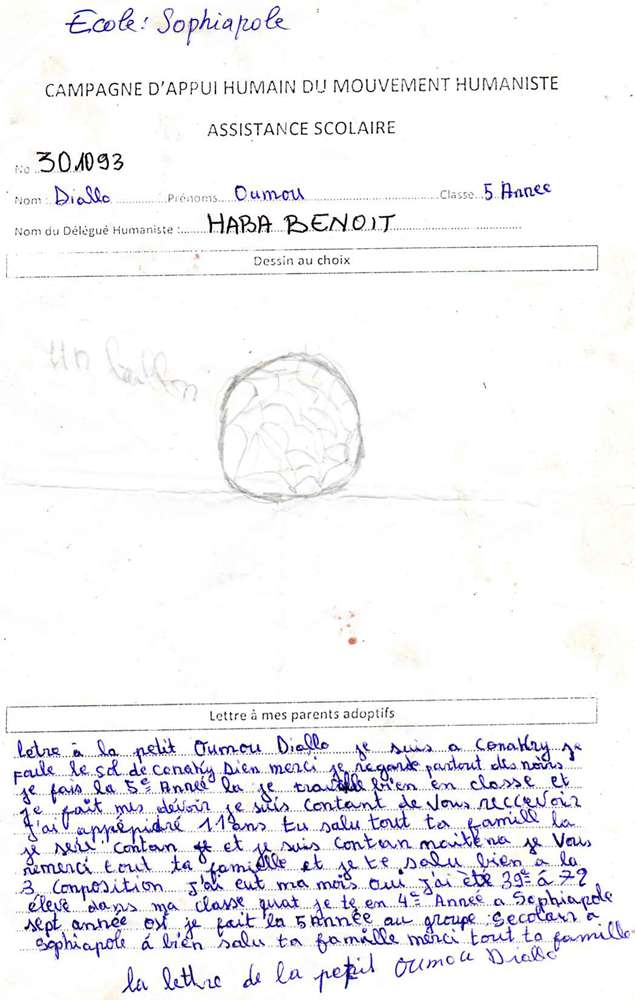 Ecole: Sophiapole
CAMPAGNE D'APPUI HUMAIN DU MOUVEMENT HUMANISTE
ASSISTANCE SCOLAIRE
No 301093
Nom: Diallo Prénoms Oumou Classe 5 Annee
Nom du Délégué Humaniste: HABA BENOIT
Dessin au choix
un ballon
Lettre à mes parents adoptifs
letre à la petit Oumou Diallo je suis a Conakry je
foule le sol de Conakry Dien merci je regarde partout des noirs
je fais la 5e Année la je travalle bien en classe et
je fait mes dévoir je suis contant de vous reccevoir
J'ai 11ans tu salu tout ta famill la
je seui contan et je suis contan maitena je Vous
remerci tout ta famielle et je te salu bien à la
3 Composition J'ai eut ma mois oui j'ai été 39e à 72
élevé dans ma classe quat je te en 4e Année a Sophiapole
sept année osi je fait la 5 Année au groupe Secolair a
Sophiapole á bien salu ta famille merci tout ta famille
la lettre de la petit Oumou Diallo